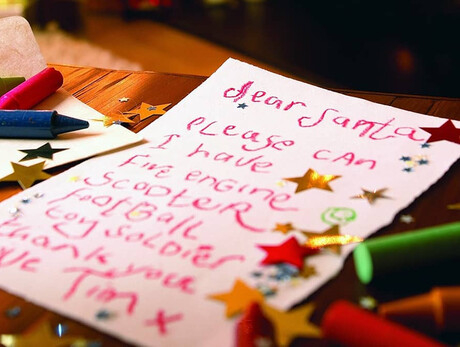 dear Santa
Please can
I have
Fire engine
Scooter
football
toy Soldier
thank you
love Tim x